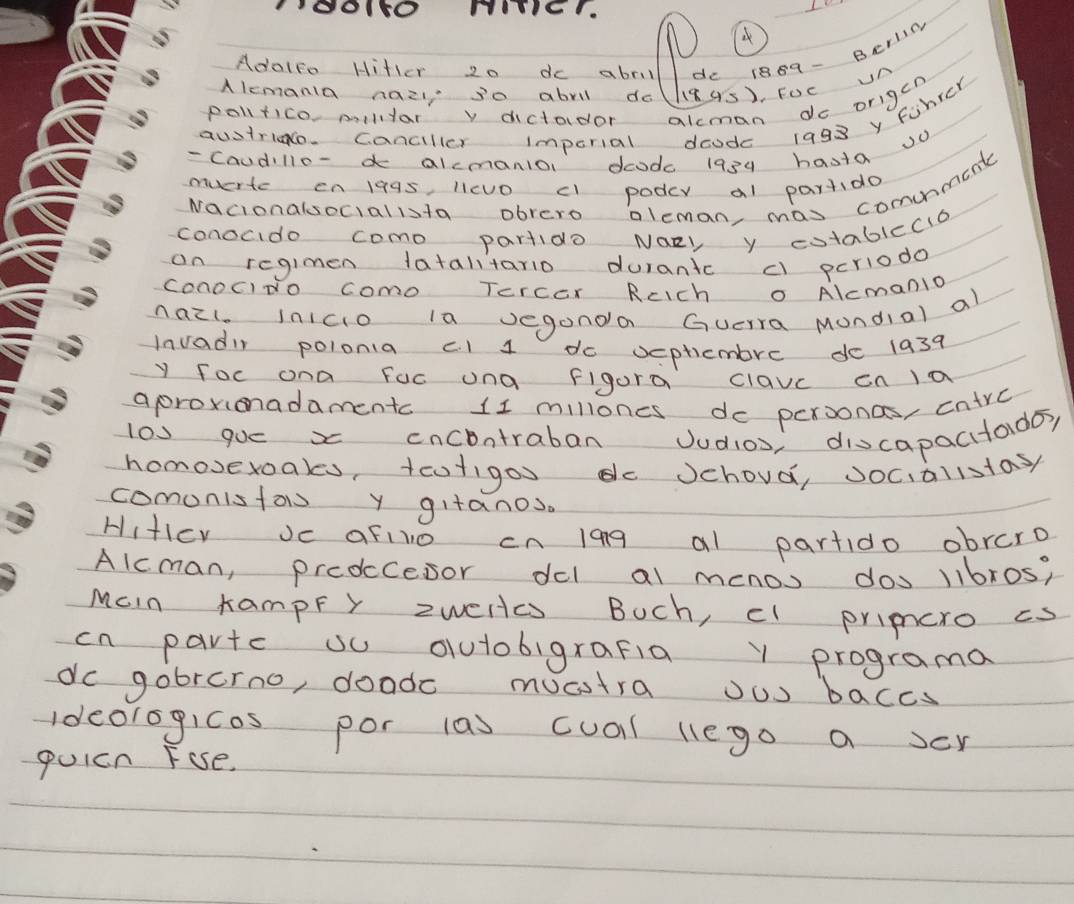 Adolfo Hitler.
4
Adolfo Hitler 20 de abril de 1889 - Berlin
Alemania nazi; 30 abril de (1895), Fue un
politico, militar y dictador aleman de origen
austriaco. Canciller imperial desde 1993 y Führer
- Caudillo - de alemania, desde 1934 hasta su
muerte en 1995, llevo el poder al partido
Nacionalsocialista obrero aleman, mas comunmente
conocido como partido Nazi, y establecio
un regimen latalitario durante el periodo
conocido como Tercer Reich o Alemania
nazi. Inicio la segunda Guerra Mundial al
invadir polonia el 1 de septiembre de 1939
y Foe ona Fue una Figura clave en la
aproximadamente 11 millones de personas, entre
los que se encontraban Judios, discapacitados,
homosexoales, testigos de Jehová, socialistas,
comonistas y gitanos.
Hitler se afilio en 1919 al partido obrero
Aleman, predecesor del al menos dos libros;
Mein kampf y zweites Buch, el primero es
en parte su autobigrafia y programa
de gobrerno, donde muestra sus bacces
ideologicos por las cual llego a ser
quien Fuse.